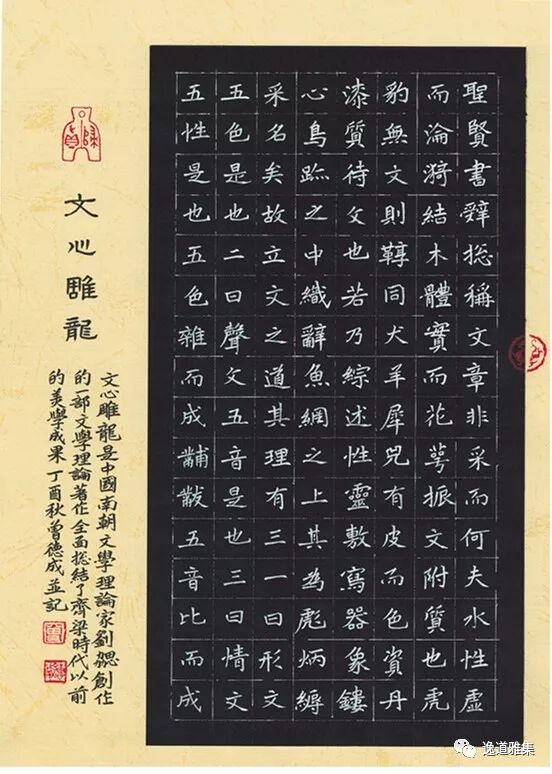 聖賢書辭摠稱文章非采而何夫水性虛
而淪漪結木體實而花萼振文附質也虎
豹無文則鞟同犬羊犀兕有皮而色資丹
漆質待文也若乃綜述性靈敷寫器象鏤
心鳥跡之中織辭魚網之上其為彪炳縟
采名矣故立文之道其理有三一曰形文
五色是也二曰聲文五音是也三曰情文
五性是也五色雜而成黼黻五音比而成
文心雕龍
文心雕龍是中國南朝文學理論家劉勰創作
的一部文學理論著作全面摠結了齊梁時代以前
的美學成果丁酉秋曾德成並記
逸道雅集